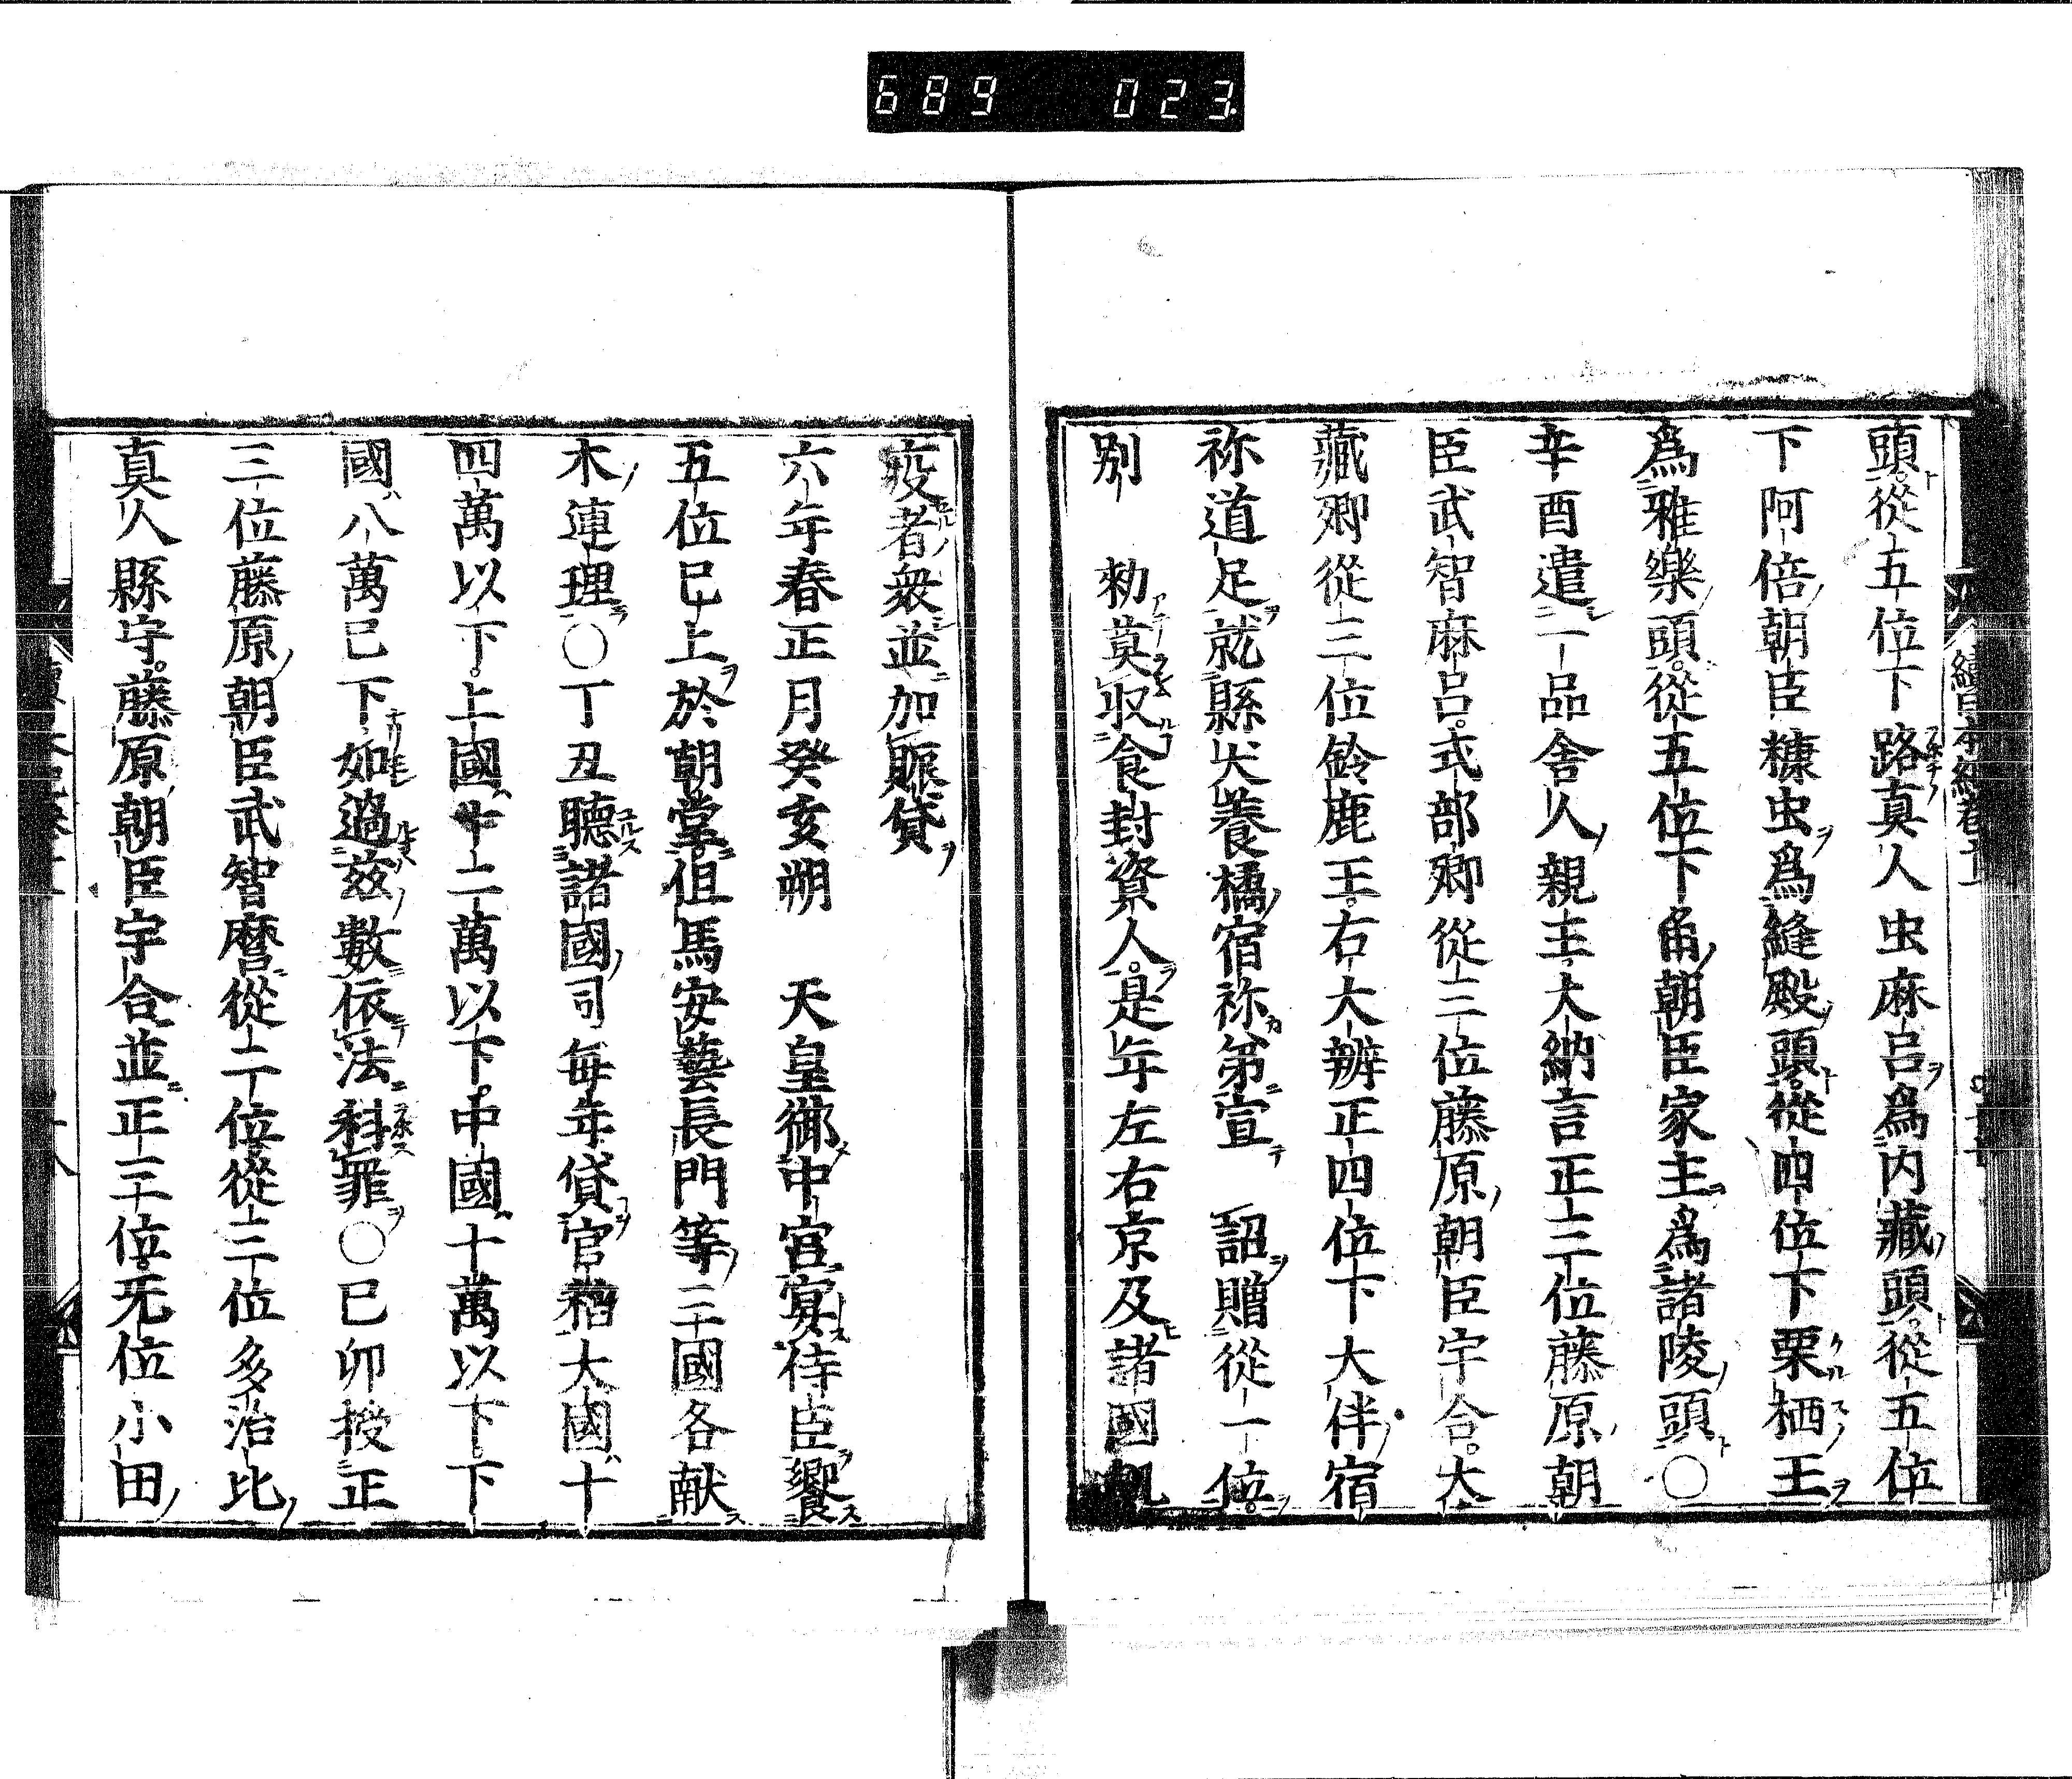 689 023
頭。從五位下路真人虫麻呂爲内藏頭。從五位
下阿倍朝臣糠虫爲縫殿頭。從四位下栗栖王
爲雅樂頭。從五位下角朝臣家主爲諸陵頭○
辛酉遣一品舎人親王大納言正三位藤原朝
臣武智麻呂。式部卿從三位藤原朝臣宇合。大
藏卿從三位鈴鹿王。右大辨正四位下大伴宿
祢道足就縣犬養橘宿祢第宣　詔贈從一位。
別　勅莫収食封資人。是年左右京及諸國飢
疫者衆並加賑貸
六年春正月癸亥朔　天皇御中宮宴侍臣饗
五位已上於朝堂。但馬安藝長門等三國各献
木連理○丁丑聽諸國司毎年貸官稻大國十
四萬以下。上國十二萬以下。中國十萬以下。下
國八萬已下如過茲數依法科罪○已卯授正
三位藤原朝臣武智麿從二位從三位多治比
真人縣守。藤原朝臣宇合並正三位。无位小田